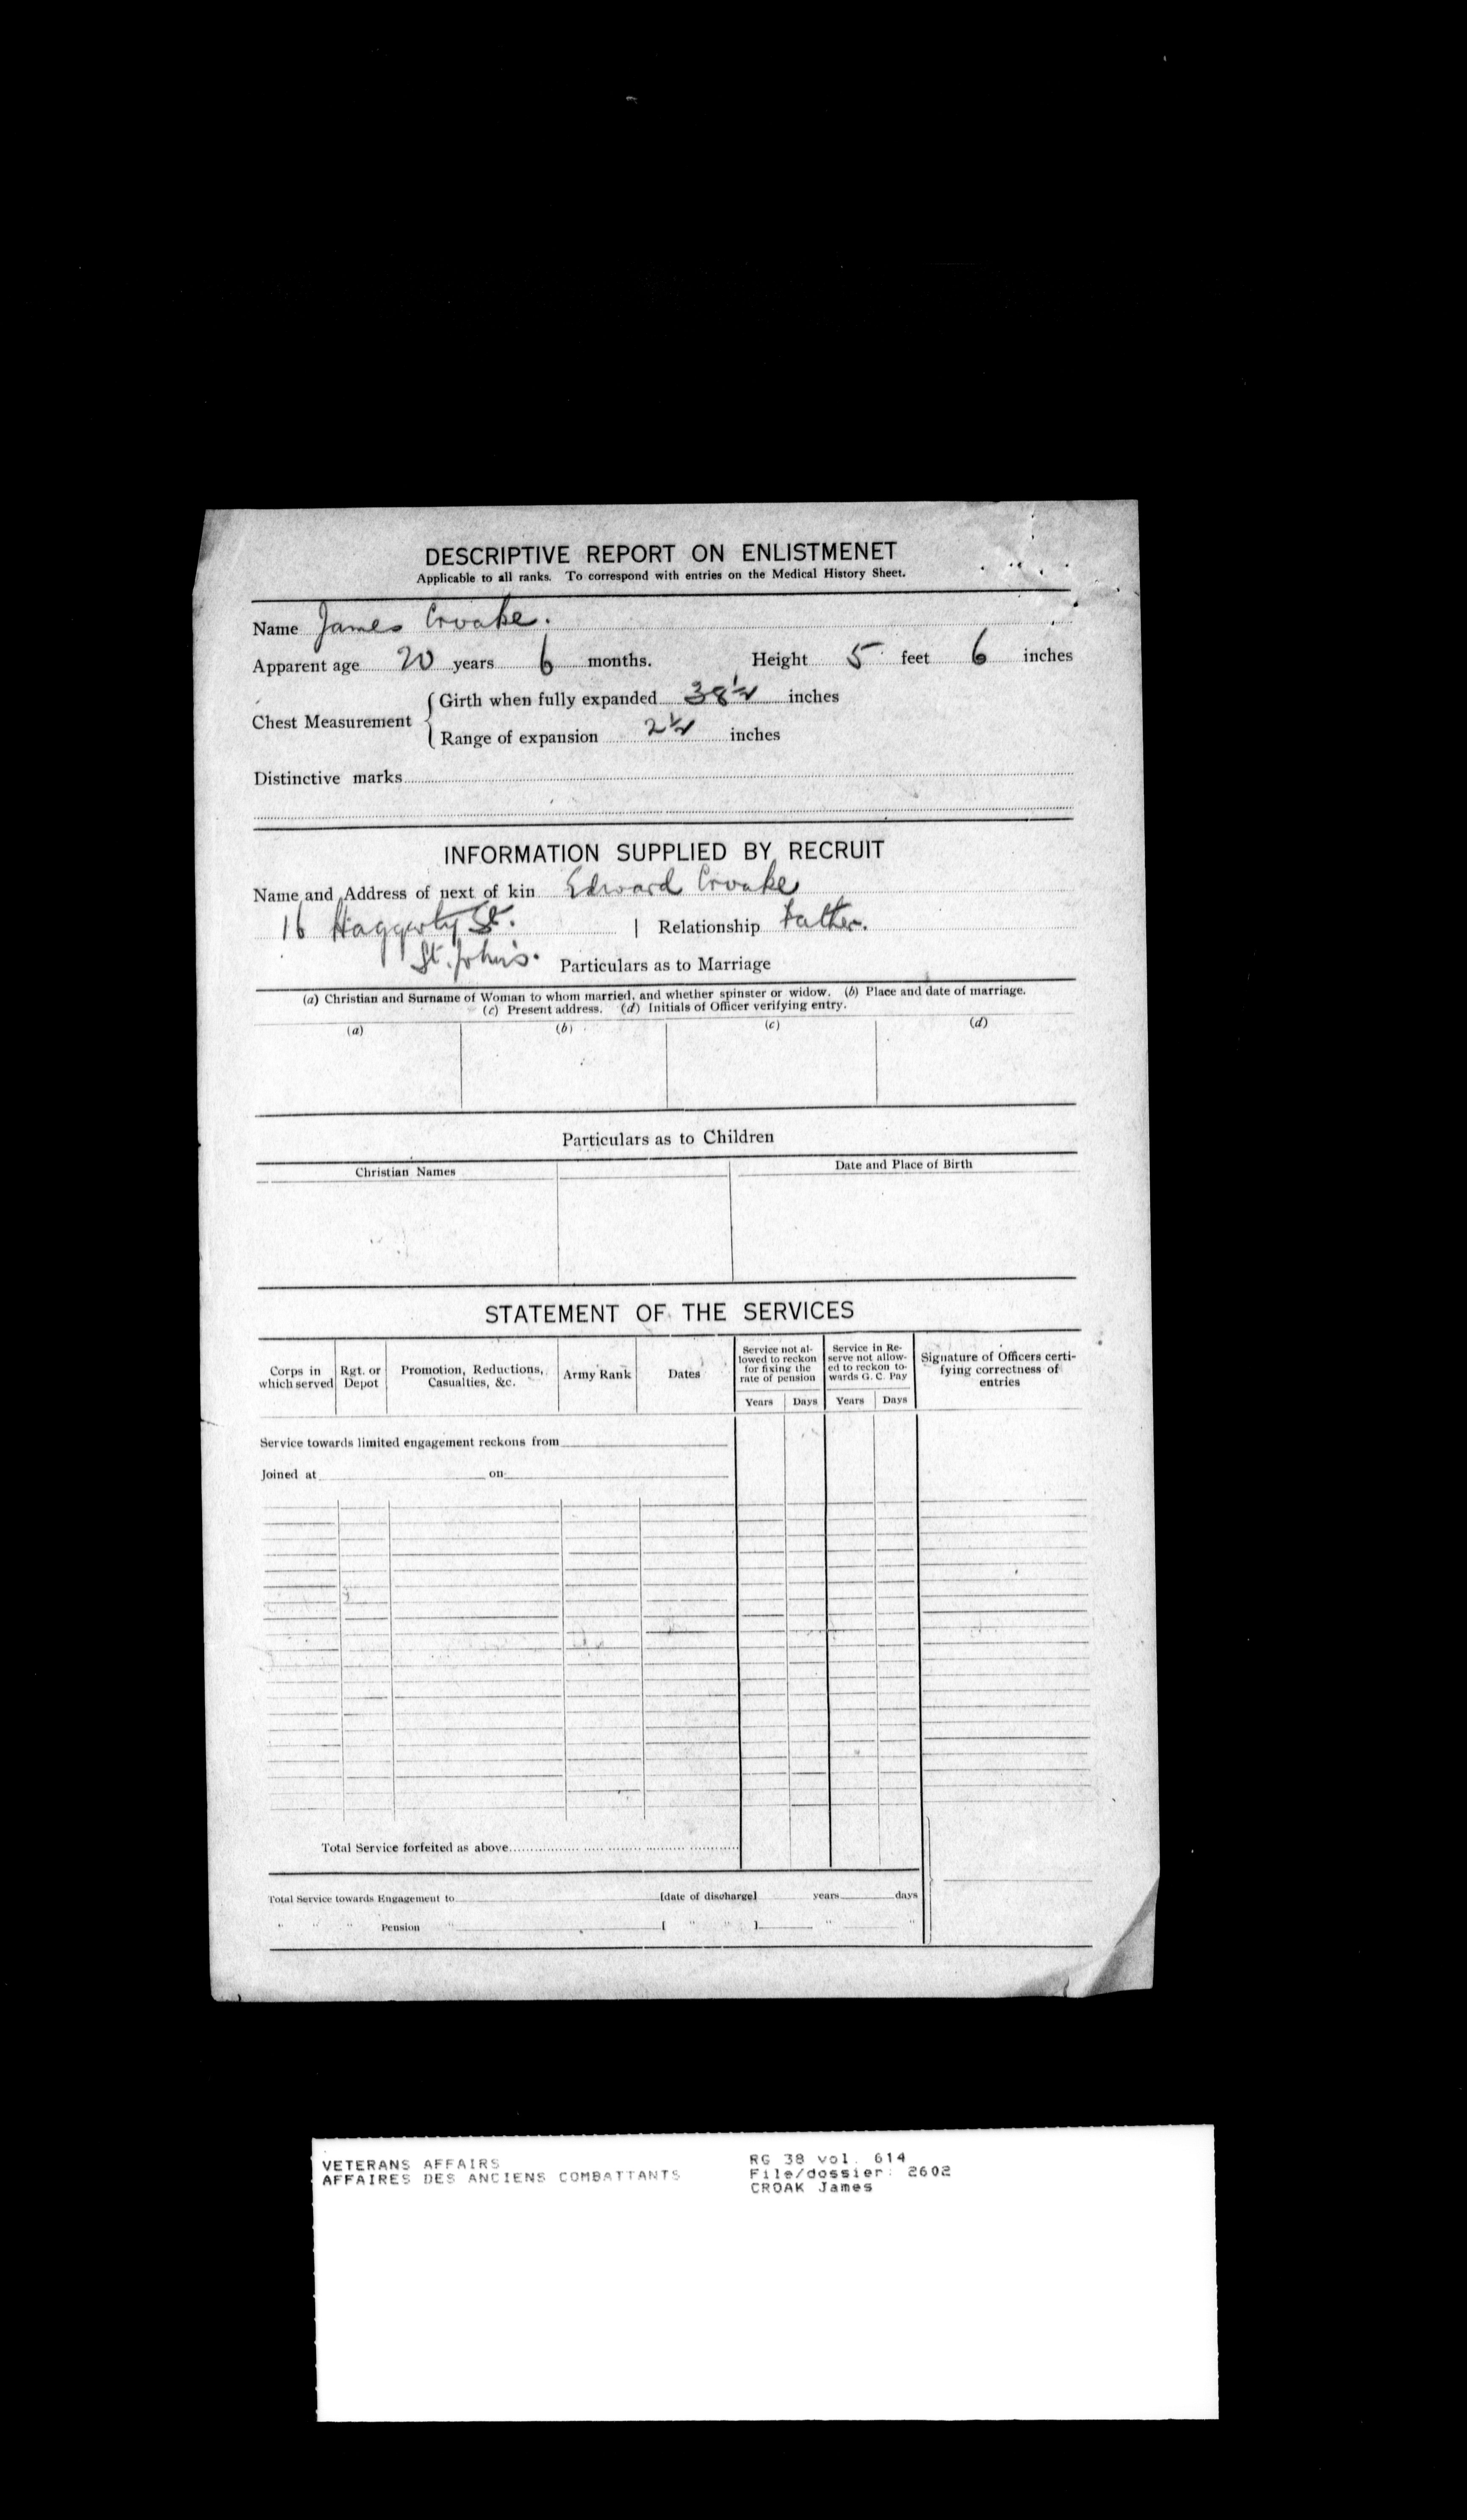 DESCRIPTIVE REPORT ON ENLISTMENET
Applicable to all ranks. To correspond with entries on the Medical History Sheet.
Name James Croake.
Apparent age 20 years 6 months. Height 5 feet 6 inches
Chest Measurement { Girth when fully expanded 38½ inches
Range of expansion 2½ inches
Distinctive marks
INFORMATION SUPPLIED BY RECRUIT
Name and Address of next of kin Edward Croake
16 Haggerty St. | Relationship Father.
St. John's.
Particulars as to Marriage
(a) Christian and Surname of Woman to whom married, and whether spinster or widow. (b) Place and date of marriage.
(c) Present address. (d) Initials of Officer verifying entry.
(a) (b) (c) (d)
Particulars as to Children
Christian Names Date and Place of Birth
STATEMENT OF THE SERVICES
Corps in which served Rgt. or Depot Promotion, Reductions, Casualties, &c. Army Rank Dates Service not allowed to reckon for fixing the rate of pension Service in Reserve not allowed to reckon towards G. C. Pay Signature of Officers certifying correctness of entries
Years Days Years Days
Service towards limited engagement reckons from
Joined at on
Total Service forfeited as above
Total Service towards Engagement to [date of discharge] years days
" " " Pension " [ " " ] " "
VETERANS AFFAIRS
AFFAIRES DES ANCIENS COMBATTANTS
RG 38 vol. 614
File/dossier: 2602
CROAK James